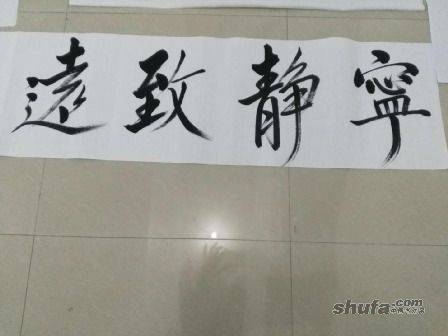 寧静致遠
shufa.com